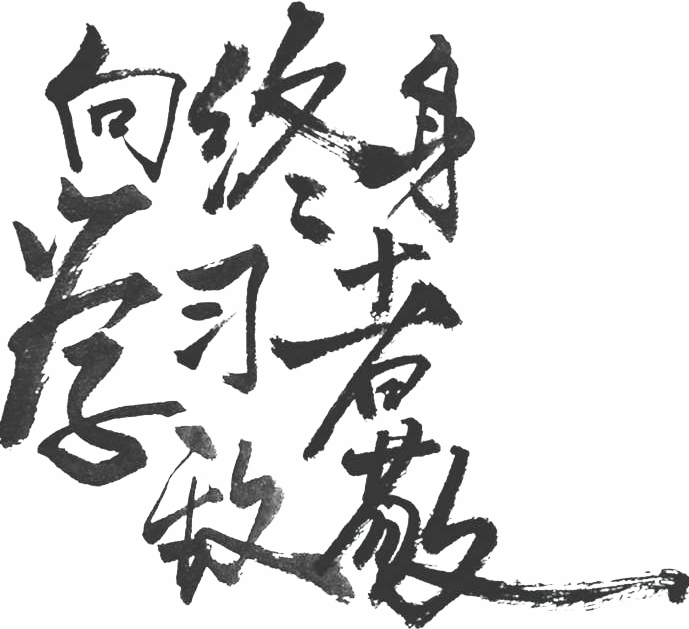 向终身
学习者
致敬